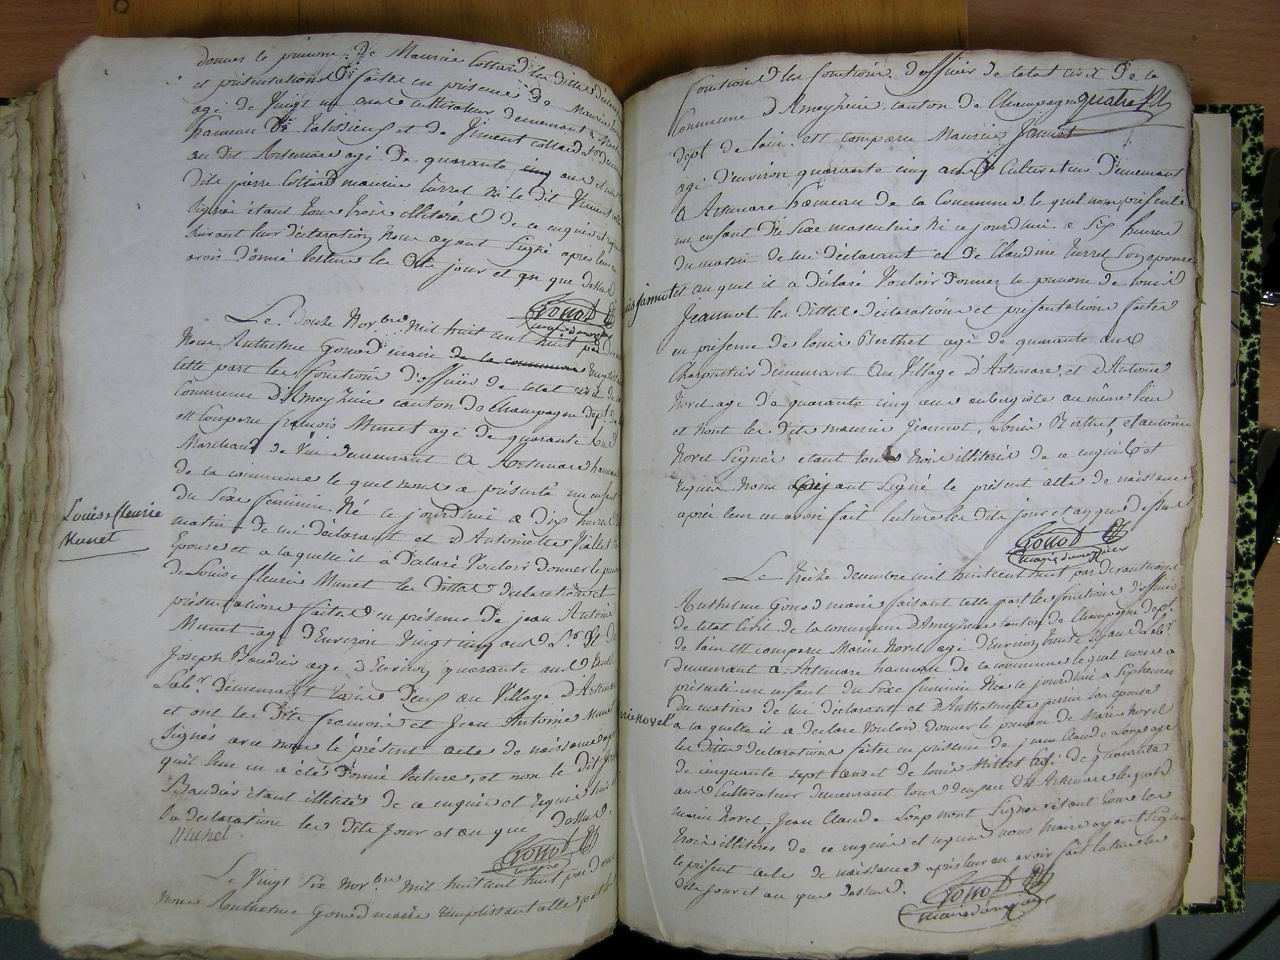 donner le prénom de Maurice Cottard les dittes
et présentations faites en présence de Maurice
agé de Vingt un ans cultivateur demeurant a
hameau de et de Vincent Cottard
au dit Artemare agé de quarante cinq ans et
dits pierre Cottard maurice turrel ni le dit Vincent
signés étant tous trois illitérés de ce enquis et
suivant leur déclaration nous ayant signé après leur
avoir donné lecture les dit jour et an que dessus
Gonod
maire
Le Douze Nov.bre mil huit cent huit par
Nous Anthelme Gonod maire de la commune
cette part les fonctions d'officier de l'état civil de la
Commune d'Ameyzieu canton de Champagne dept
est comparu françois Munet agé de quarante
Marchand de Vin demeurant a Artemare hameau
de la commune lequel nous a présenté un enfant
du sexe féminin Né ce jourdhui a dix heures
Louise fleurie
Munet
matin de lui déclarant et d'Antoinette
Epouse et a laquelle il a déclaré vouloir donner le
de Louise fleurie Munet les dittes déclarations et
présentations faites en présence de jean Antoine
Munet agé d'Environ Vingt cinq ans
Joseph Baudin agé d'Environ quarante ans
Lab.r demeurant tous Deux au Village d'Artemare
et ont les Dits françois et Jean Antoine Munet
signés avec nous le présent acte de naissance
qu'il leur en a été donné lecture, et non le dit
Baudin étant illitéré de ce enquis et requis
sa déclaration les dits jour et an que dessus
Munet
Gonod
maire
Le Vingt Six Nov.bre mil huit cent huit par
nous Anthelme Gonod maire remplissant
fonctions les fonctions d'officier de l'état civil de la
Commune d'Ameyzieu canton de Champagne quatre
dept de l'ain est comparu Maurice Jannot
agé d'environ quarante cinq ans Cultivateur demeurant
a Artemare hameau de la Commune lequel nous présenté
un enfant du sexe masculin Né ce jourdhui a six heures
du matin de lui déclarant et de Claudine turrel son épouse
Jannot et auquel il a déclaré vouloir donner le prénom de Louis
Jeannot les dittes déclarations et présentations faites
en présence de Louis Berthet agé de quarante ans
Charpentier demeurant au Village d'Artemare et d'Antoine
Novel agé de quarante cinq ans aubergiste au même lieu
et n'ont les dits maurice Jeannot, Louis Berthet, et antoine
Novel Signés étant tous trois illitérés de ce enquis et
requis Nous ayant signé le présent acte de naissance
après leur en avoir fait lecture les dits jour et an que dessus
Gonod
maire d'ameyzieu
Le treize décembre mil huit cent huit par devant nous
Anthelme Gonod maire faisant cette part les fonctions d'officier
de l'état civil de la commune d'Ameyzieu canton de Champagne dept
de l'ain est comparu Marin Novel agé d'environ trente
demeurant a Artemare hameau de la commune lequel nous a
présenté un enfant du sexe féminin Née ce jourdhui a sept heures
du matin de lui déclarant et d'Anthelmette son épouse
novel a laquelle il a déclaré vouloir donner le prénom de Marie Novel
les dittes déclarations faites en présence de jean Claude agé
de cinquante sept ans et de Louis agé de quarante
ans Cultivateur demeurant tous deux au dit Artemare lesquels
marin Novel Jean Claude n'ont Signé étant tous les
trois illitérés de ce enquis et requis nous maire ayant signé
le présent acte de naissance après leur en avoir fait lecture les
dits jour et an que dessus.
Gonod
maire d'ameyzieu